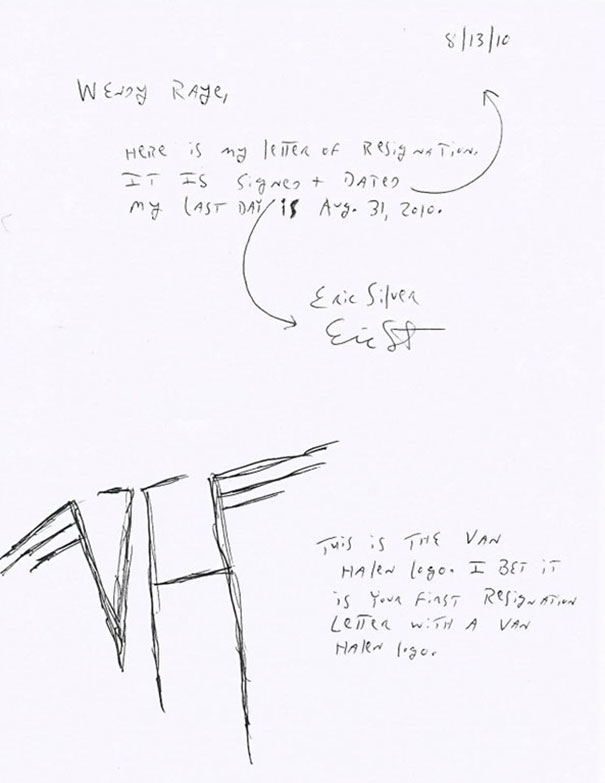 8/13/10
Wendy Raye,
Here is my letter of resignation.
It is signed + dated
my last day is Aug. 31, 2010.
Eric Silver
Eric S
VH
This is the Van
Halen logo. I bet it
is your first resignation
letter with a Van
Halen logo.